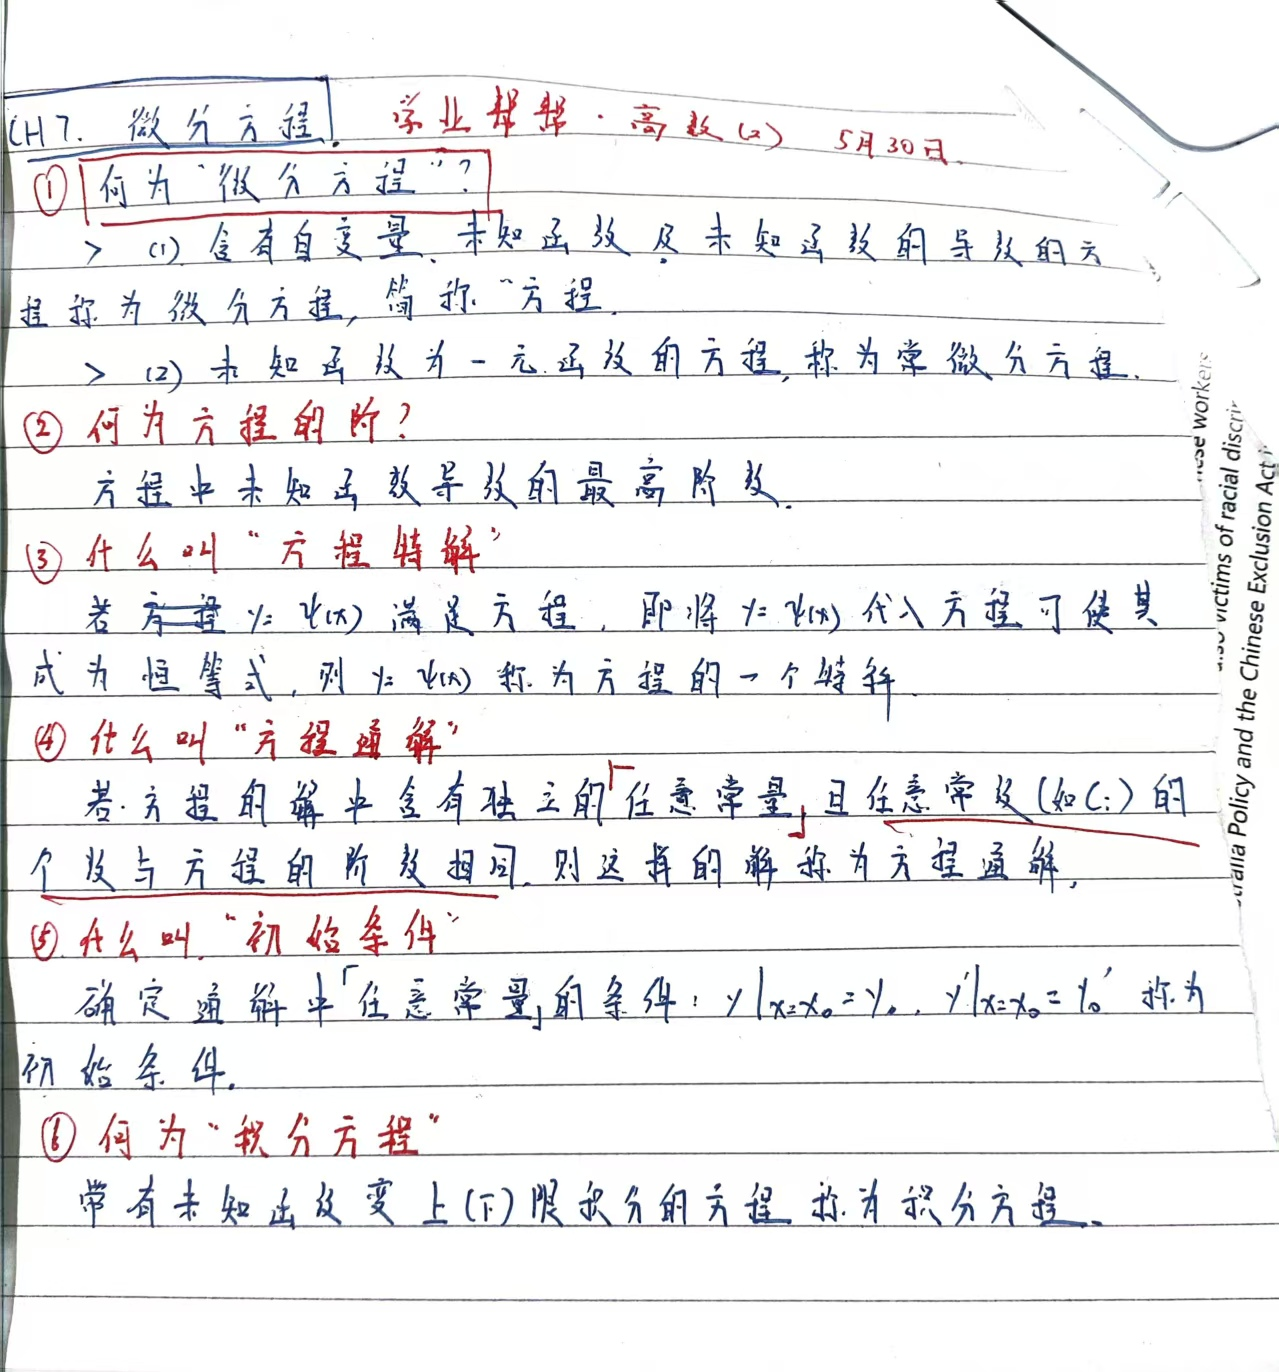 CH7. 微分方程. 学业帮帮·高数(2) 5月30日.
① 何为“微分方程”?
> (1) 含有自变量、未知函数及未知函数的导数的方
程称为微分方程, 简称“方程.
> (2) 未知函数为一元函数的方程, 称为常微分方程.
② 何为方程的阶?
方程中未知函数导数的最高阶数.
③ 什么叫“方程特解”
若方程 y=ψ(x) 满足方程, 即将 y=ψ(x) 代入方程可使其
成为恒等式, 则 y=ψ(x) 称为方程的一个特解.
④ 什么叫“方程通解”
若方程的解中含有独立的「任意常量」且任意常数(如C:)的
个数与方程的阶数相同, 则这样的解称为方程通解.
⑤ 什么叫“初始条件”
确定通解中「任意常量」的条件: y|x=x₀=y₀, y'|x=x₀=y₀' 称为
初始条件.
⑥ 何为“积分方程”
带有未知函数变上(下)限积分的方程称为积分方程.
victims of racial discri
Policy and the Chinese Exclusion Act